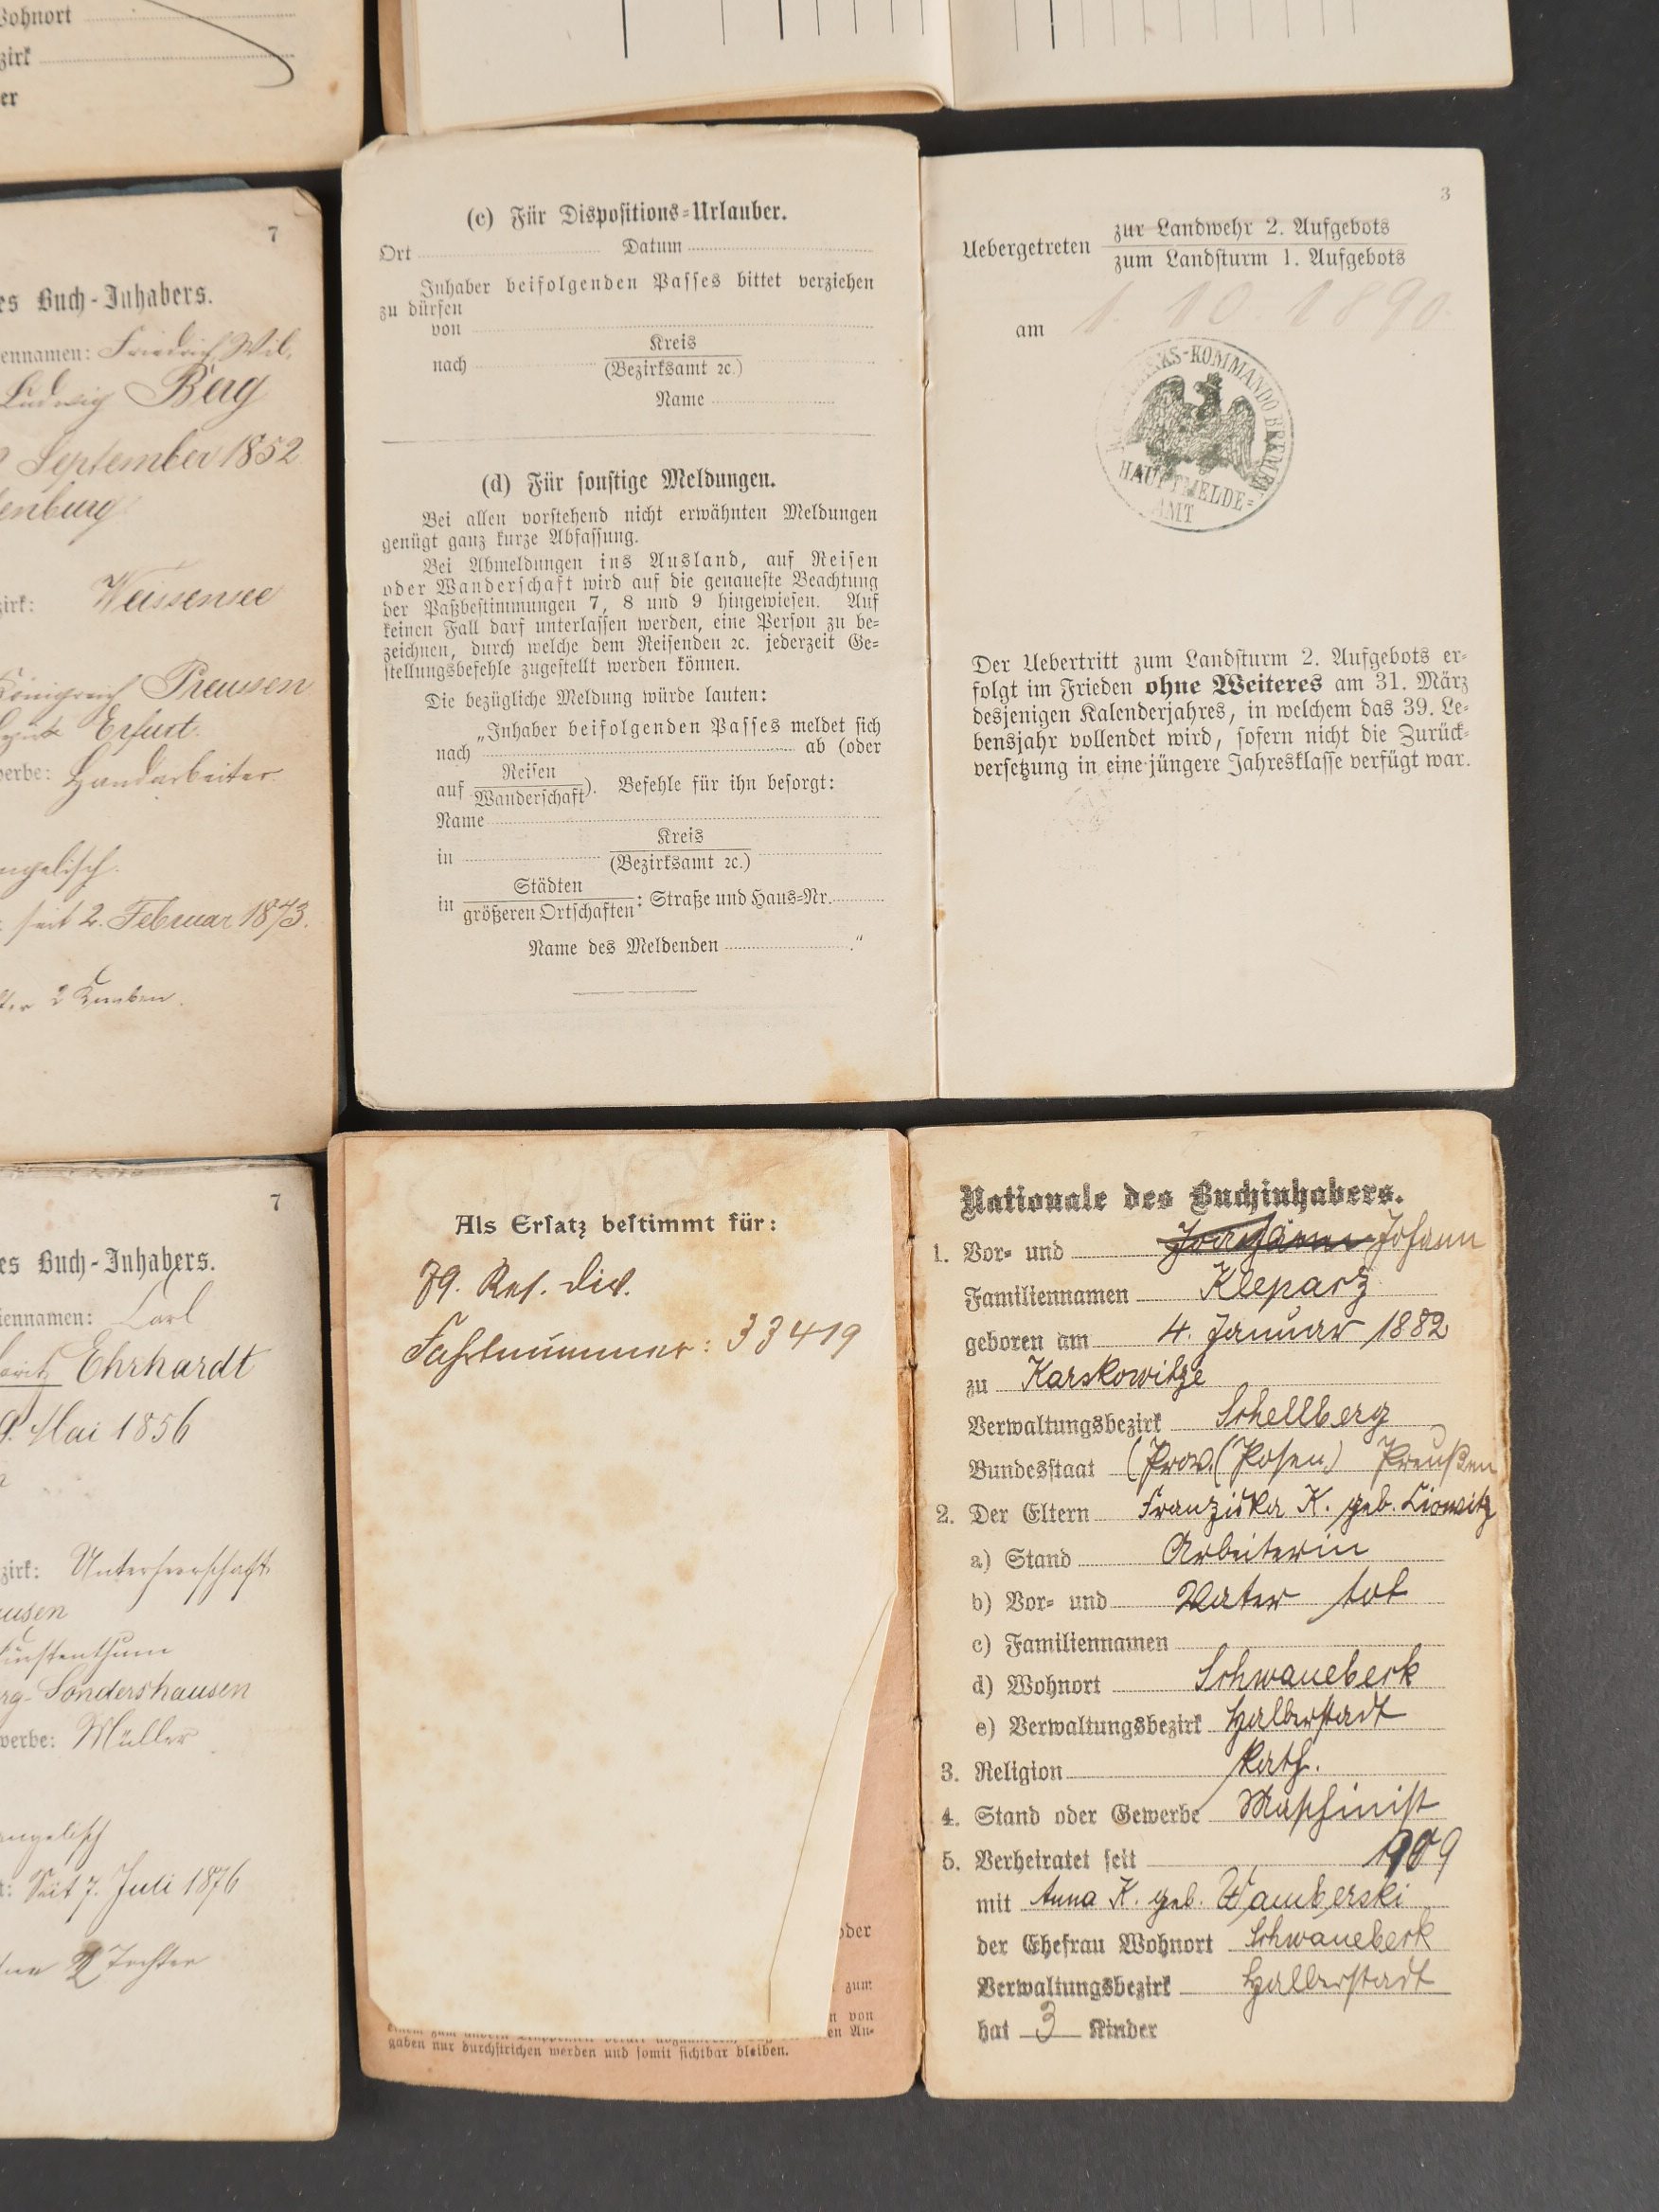 Wohnort
zirk
er
7
es Buch-Inhabers.
ennamen: Friedrich Wil.
Ludwig Berg
September 1852
enburg
zirk: Weissensee
Königreich Preussen
Erfurt.
erbe: Handarbeiter.
ngelisch.
seit 2. Februar 1873.
2 Knaben.
7
es Buch-Inhabers.
iennamen: Carl
Ehrhardt
9. Mai 1856
zirk: Unterherrschaft
ausen
Fürstenthum
rg-Sondershausen
werbe: Müller
angelisch
t: Seit 7. Juli 1876
2 Tochter
(c) Für Dispositions-Urlauber.
Ort Datum
Inhaber beifolgenden Passes bittet verziehen
zu dürfen
von
Kreis
nach (Bezirksamt 2c.)
Name
(d) Für sonstige Meldungen.
Bei allen vorstehend nicht erwähnten Meldungen
genügt ganz kurze Abfassung.
Bei Abmeldungen ins Ausland, auf Reisen
oder Wanderschaft wird auf die genaueste Beachtung
der Paßbestimmungen 7, 8 und 9 hingewiesen. Auf
keinen Fall darf unterlassen werden, eine Person zu be-
zeichnen, durch welche dem Reisenden 2c. jederzeit Ge-
stellungsbefehle zugestellt werden können.
Die bezügliche Meldung würde lauten:
„Inhaber beifolgenden Passes meldet sich
nach ab (oder
Reisen
auf Wanderschaft). Befehle für ihn besorgt:
Name
Kreis
in (Bezirksamt 2c.)
Städten
in größeren Ortschaften: Straße und Haus-Nr.
Name des Meldenden ."
3
zur Landwehr 2. Aufgebots
Uebergetreten
zum Landsturm 1. Aufgebots
am 1. 10. 1890.
BEZIRKS-KOMMANDO BREMEN
HAUPTMELDE-
AMT
Der Uebertritt zum Landsturm 2. Aufgebots er-
folgt im Frieden ohne Weiteres am 31. März
desjenigen Kalenderjahres, in welchem das 39. Le-
bensjahr vollendet wird, sofern nicht die Zurück-
versetzung in eine jüngere Jahresklasse verfügt war.
Als Ersatz bestimmt für:
79. Res. Div.
Fahrtnummer: 33419
oder
zum
n von
en An-
gaben nur durchstrichen werden und somit sichtbar bleiben.
Nationale des Buchinhabers.
1. Vor- und Johann
Familiennamen Kleparz
geboren am 4. Januar 1882
zu Karskowitze
Verwaltungsbezirk Schellberg
Bundesstaat (Prov. (Posen) Preußen
2. Der Eltern Franziska K. geb.
a) Stand Arbeiterin
b) Vor- und Vater tot
c) Familiennamen
d) Wohnort Schwanebeck
e) Verwaltungsbezirk Halberstadt
3. Religion kath.
4. Stand oder Gewerbe Maschinist
5. Verheiratet seit 1909
mit Anna K. geb. Wamberski
der Ehefrau Wohnort Schwanebeck
Verwaltungsbezirk Halberstadt
hat 3 Kinder